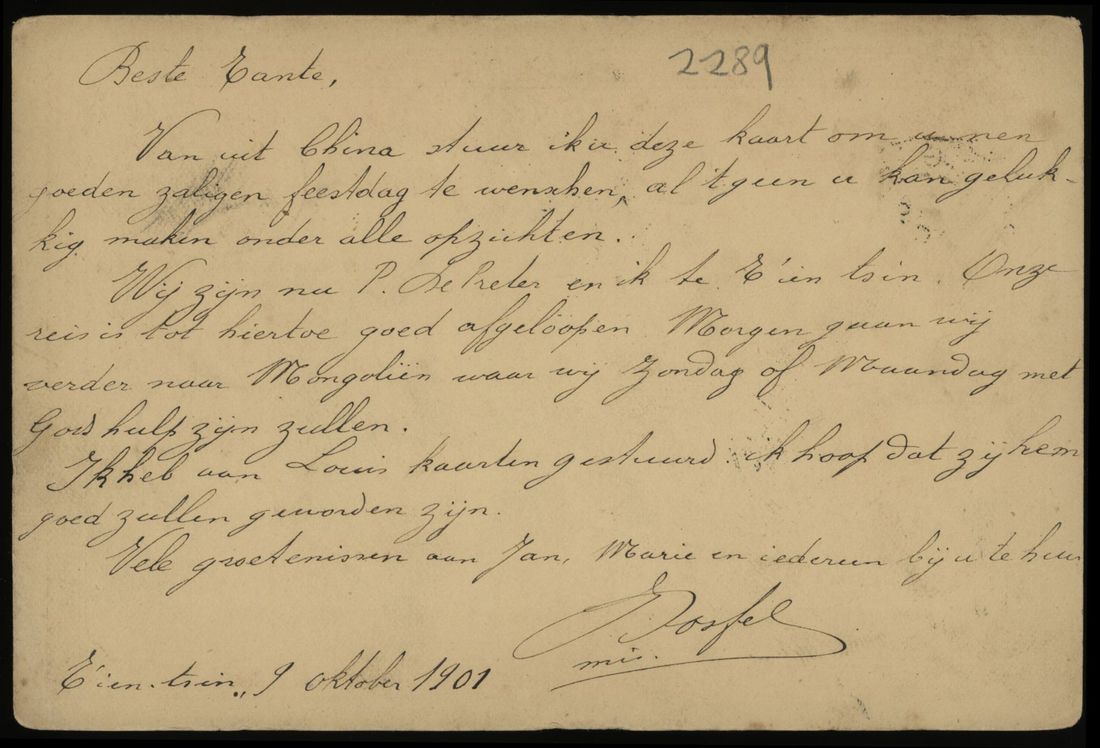 2289
Beste Tante,
Van uit China stuur ik u deze kaart om u nen
goeden zaligen feestdag te wenschen, al 't geen u kan geluk-
kig maken onder alle opzichten.
Wij zijn nu P. De Preter en ik te T'ien tsin. Onze
reis is tot hiertoe goed afgeloopen. Morgen gaan wij
verder naar Mongoliën waar wij Zondag of Maandag met
Gods hulp zijn zullen.
Ik heb aan Louis kaarten gestuurd. ik hoop dat zij hem
goed zullen geworden zijn.
Vele groetenissen aan Jan, Marie en iedereen bij u te huis
mis.
T'ien-tsin, 9 oktober 1901